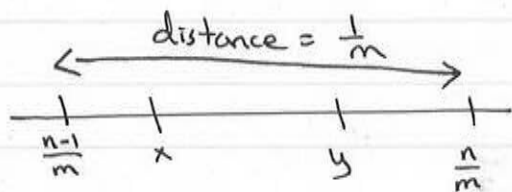 distance = 1/m
n-1/m x y n/m